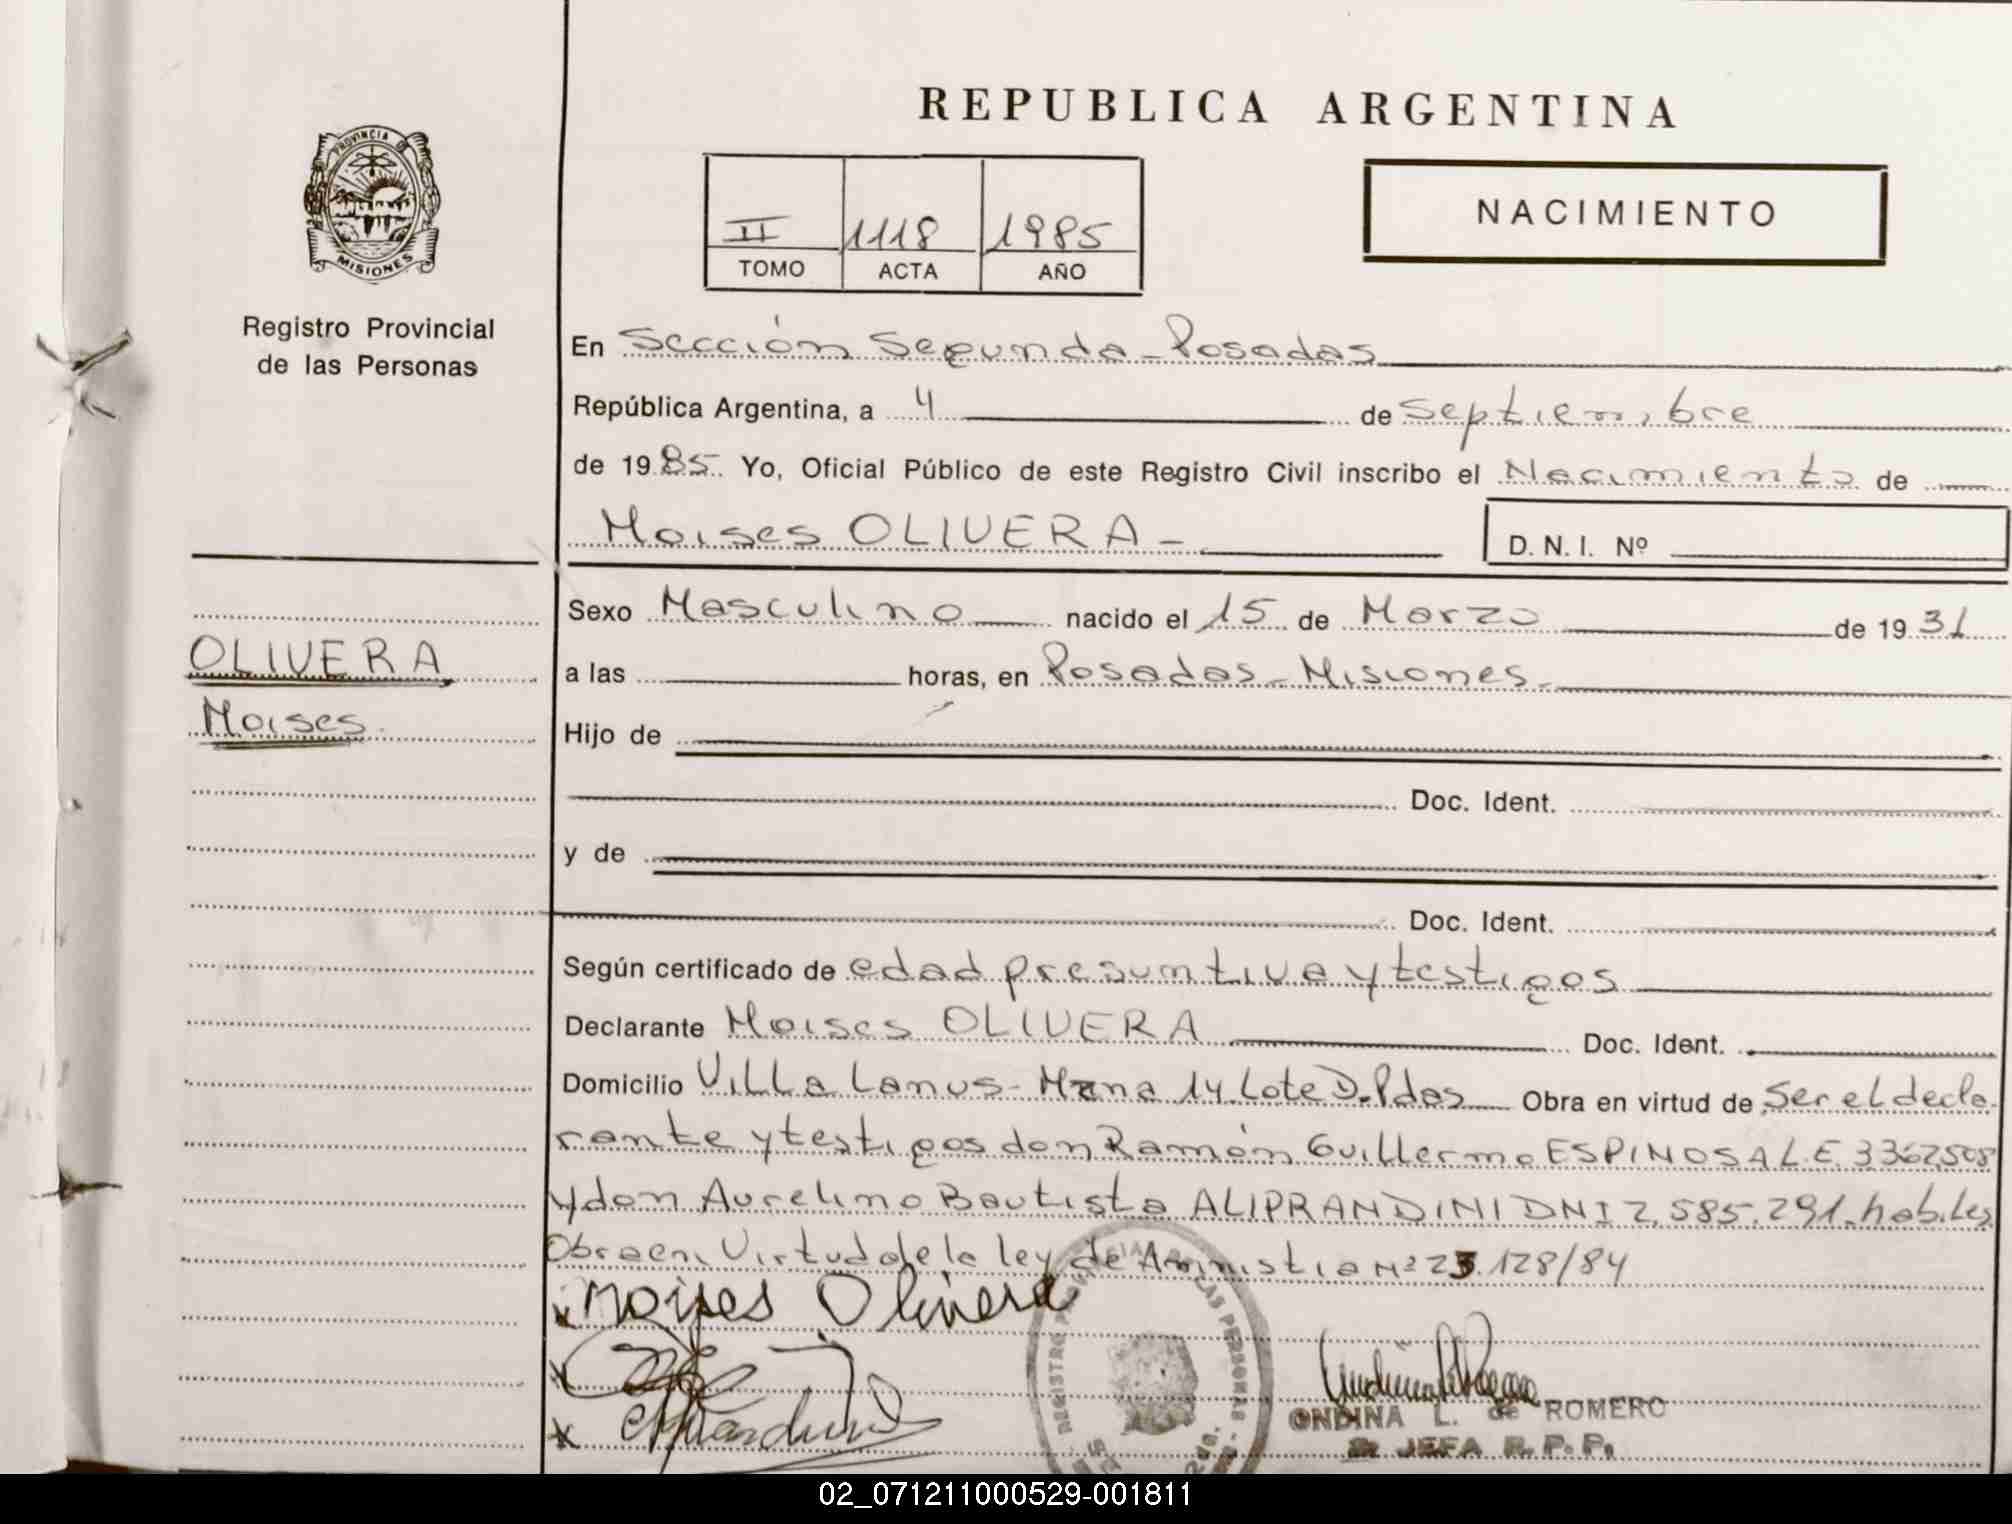 REPUBLICA ARGENTINA
PROVINCIA DE
MISIONES
Registro Provincial
de las Personas
II 1118 1985
TOMO ACTA AÑO
NACIMIENTO
En Sección Segunda - Posadas
República Argentina, a 4 de Septiembre
de 1985 Yo, Oficial Público de este Registro Civil inscribo el Nacimiento de
Moises OLIVERA -
D. N. I. Nº
OLIVERA
Moises.
Sexo Masculino nacido el 15 de Marzo de 1931
a las horas, en Posadas - Misiones -
Hijo de
Doc. Ident.
y de
Doc. Ident.
Según certificado de edad presuntiva y testigos
Declarante Moises OLIVERA Doc. Ident.
Domicilio Villa Lanus - Mzna 14 Lote D. Pdas Obra en virtud de Ser el decla
rante y testigos don Ramón Guillermo ESPINOSA L.E. 3362508
y don Aurelino Bautista ALIPRANDINI DNI 2.585.291. habiles
Obra en Virtud de la ley de Aministia Nº 23.128/84
x Moises Olivera
x
x
REGISTRO PROVINCIAL DE LAS PERSONAS
ONDINA L. de ROMERO
JEFA R. P. P.
02_071211000529-001811